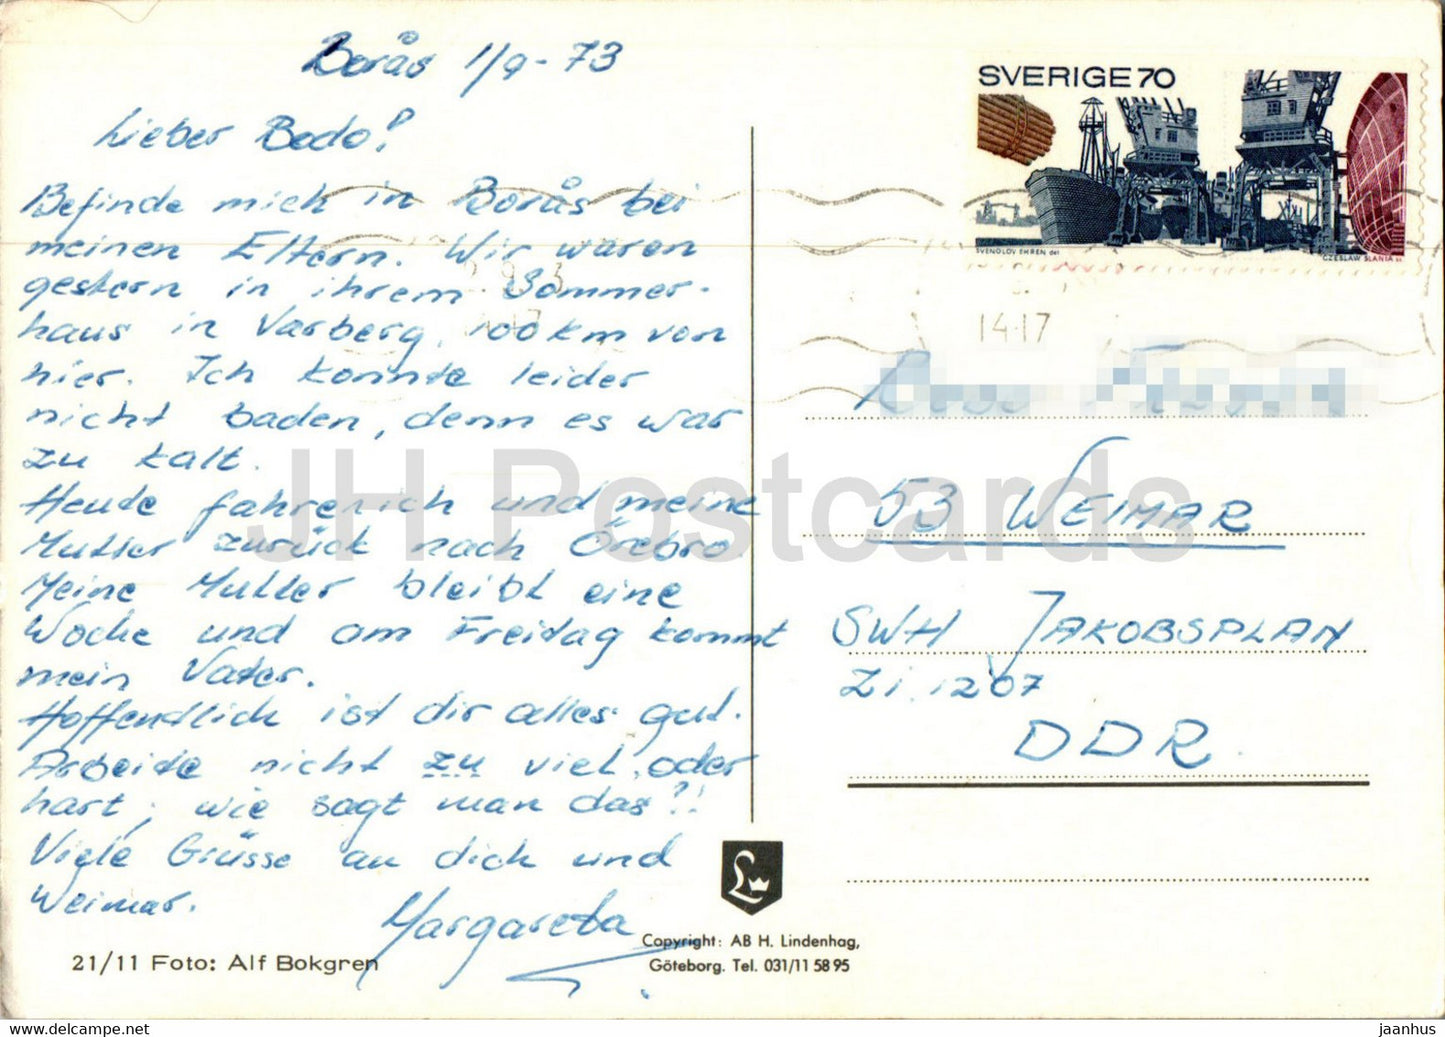 Borås 1/9-73
Lieber Bodo!
Befinde mich in Borås bei
meinen Eltern. Wir waren
gestern in ihrem Sommer-
haus in Varberg, 100 km von
hier. Ich konnte leider
nicht baden, denn es war
zu kalt.
Heute fahren ich und meine
Mutter zurück nach Örebro
Meine Mutter bleibt eine
Woche und am Freitag kommt
mein Vater.
Hoffentlich ist dir alles gut.
Arbeite nicht zu viel, oder
hart, wie sagt man das?!
Viele Grüsse an dich und
Weimar.
Margareta
21/11 Foto: Alf Bokgren
Copyright: AB H. Lindenhag,
Göteborg. Tel. 031/11 58 95
L
SVERIGE 70
SVENOLOV EHREN del
CZESLAW SLANIA sc
14-17
53 WEIMAR
SWH JAKOBSPLAN
Zi. 1207
DDR.
JH Postcards
jaanhus
www.delcampe.net